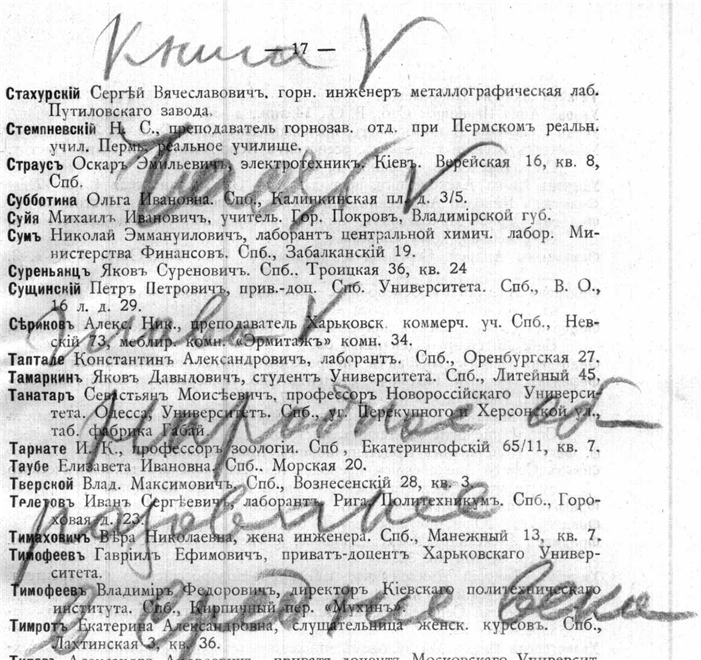 Книга V
— 17 —
Стахурскій Сергѣй Вячеславовичъ. горн. инженеръ металлографическая лаб.
Путиловскаго завода.
Стемпневскій Н. С., преподаватель горнозав. отд. при Пермскомъ реальн.
учил. Пермь, реальное училище.
Страусъ Оскаръ Эмильевичъ, электротехникъ. Кіевъ. Верейская 16, кв. 8,
Спб.
Субботина Ольга Ивановна. Спб., Калинкинская пл. д. 3/5.
Суйя Михаилъ Ивановичъ, учитель. Гор. Покровъ, Владимірской губ.
Сумъ Николай Эммануиловичъ, лаборантъ центральной химич. лабор. Ми-
нистерства Финансовъ. Спб., Забалканскій 19.
Суреньянцъ Яковъ Суреновичъ. Спб.. Троицкая 36, кв. 24
Сущинскій Петръ Петровичъ, прив.-доц. Спб. Университета. Спб., В. О.,
16 л. д. 29.
Сѣриковъ Алекс. Ник., преподаватель Харьковск. коммерч. уч. Спб., Нев-
скій 73, меблир. комн. «Эрмитажъ» комн. 34.
Таптале Константинъ Александровичъ, лаборантъ. Спб., Оренбургская 27.
Тамаркинъ Яковъ Давыдовичъ, студентъ Университета. Спб., Литейный 45.
Танатаръ Севастьянъ Моисѣевичъ, профессоръ Новороссійскаго Универси-
тета. Одесса, Университетъ. Спб., уг. Перекупного и Херсонской ул.,
таб. фабрика Габай
Тарнате И. К., профессоръ зоологіи. Спб., Екатерингофскій 65/11, кв. 7.
Таубе Елизавета Ивановна. Спб.. Морская 20.
Тверской Влад. Максимовичъ. Спб., Вознесенскій 28, кв. 3.
Телетовъ Иванъ Сергѣевичъ, лаборантъ. Рига, Политехникумъ. Спб., Горо-
ховая д. 23.
Тимаховичъ Вѣра Николаевна, жена инженера. Спб., Манежный 13, кв. 7.
Тимофеевъ Гавріилъ Ефимовичъ, приватъ-доцентъ Харьковскаго Универ-
ситета.
Тимофеевъ Владиміръ Федоровичъ, директоръ Кіевскаго политехническаго
института. Спб., Кирпичный пер. «Мухинъ».
Тимротъ Екатерина Александровна, слушательница женск. курсовъ. Спб.,
Лахтинская 3, кв. 36.
V
V
Народное об-
разование
в средние века